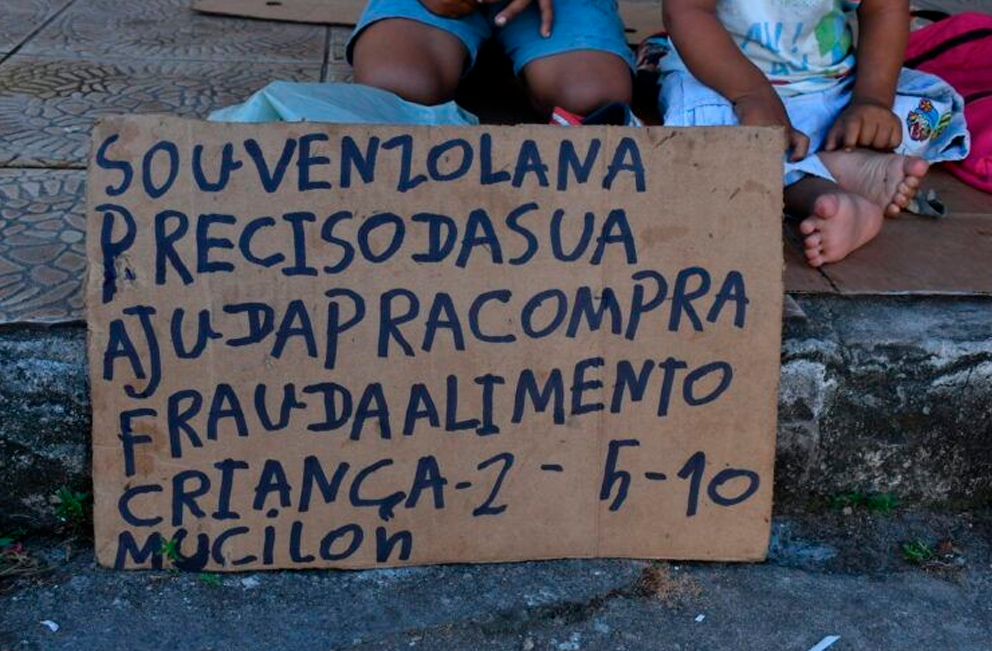 AU!
AU
SOUVENZOLANA
PRECISODASUA
AJUDAPRACOMPRA
FRAUDAALIMENTO
CRIANÇA-2-5-10
MUCILON